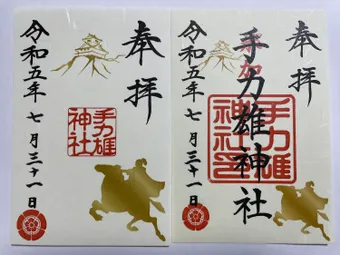 奉拝
手力雄
神社
令和五年七月三十一日
奉拝
手力雄神社
手力雄
神社
令和五年七月三十一日